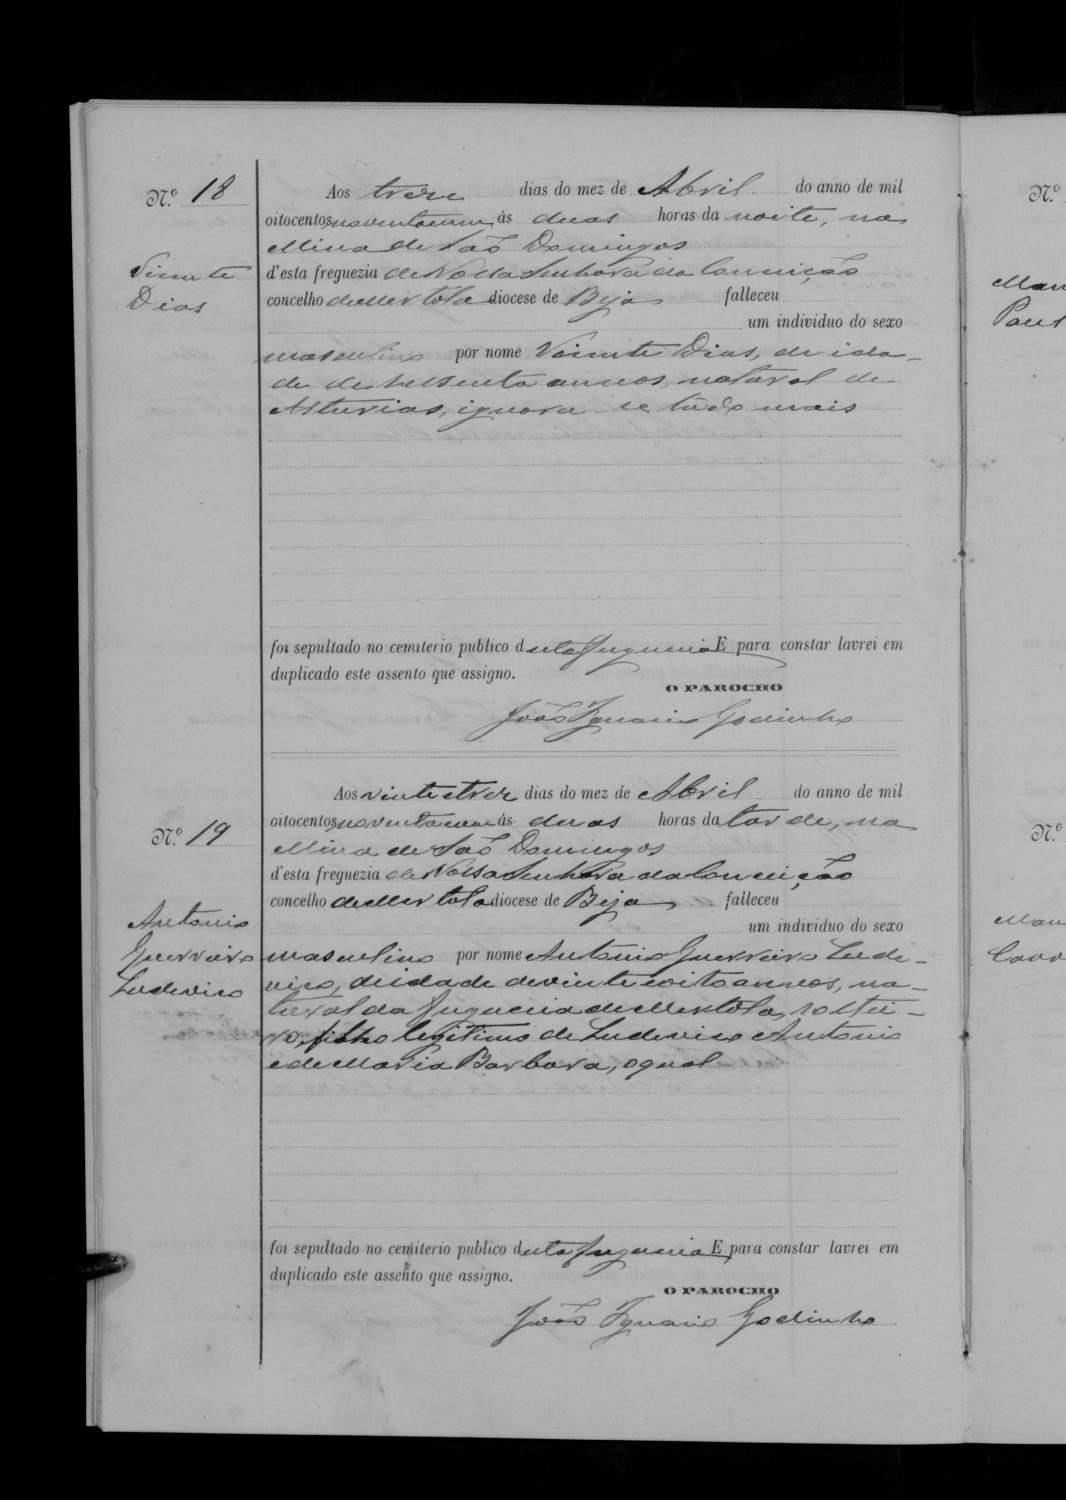 N.º 18
Vicente
Dias
Aos treze dias do mez de Abril do anno de mil
oitocentos noventa e um ás duas horas da noite, na
Mina de São Domingos
d'esta freguezia de Nossa Senhora da Conceição
concelho de Mertola diocese de Beja falleceu
um individuo do sexo
masculino por nome Vicente Dias, de ida-
de de sessenta annos, natural de
Asturias, ignora-se tudo mais
foi sepultado no cemiterio publico d'esta freguezia E para constar lavrei em
duplicado este assento que assigno.
O PAROCHO
João Ignacio Godinho
N.º 19
Antonio
Guerreiro
Ludovico
Aos vinte e trez dias do mez de Abril do anno de mil
oitocentos noventa e um ás duas horas da tarde, na
Mina de São Domingos
d'esta freguezia de Nossa Senhora da Conceição
concelho de Mertola diocese de Beja falleceu
um individuo do sexo
masculino por nome Antonio Guerreiro Ludo-
vico, de idade de vinte e oito annos, na-
tural da freguezia de Mertola, soltei-
ro, filho legitimo de Ludovico Antonio
e de Maria Barbara, o qual
foi sepultado no cemiterio publico d'esta freguezia E para constar lavrei em
duplicado este assento que assigno.
O PAROCHO
João Ignacio Godinho
N.º
N.º